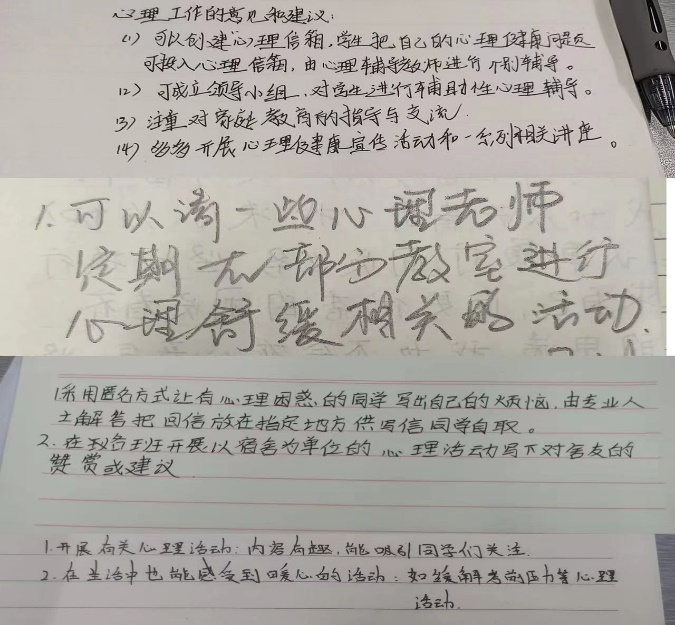 心理工作的意见和建议：
(1) 可以创建心理信箱，学生把自己的心理健康问题
可投入心理信箱，由心理辅导教师进行个别辅导。
(2) 可成立领导小组，对学生进行辅助性心理辅导。
(3) 注重对家庭教育的指导与支流.
(4) 多多开展心理健康宣传活动和一系列相关讲座。
1. 可以请一些心理老师
定期在部分教室进行
心理舒缓相关的活动.
1.采用匿名方式让有心理困惑的同学写出自己的烦恼,由专业人
士解答把回信放在指定地方供写信同学自取。
2. 在各班开展以宿舍为单位的心理活动写下对舍友的
赞赏或建议
1.开展有关心理活动：内容有趣,能吸引同学们关注.
2. 在生活中也能感受到暖心的活动：如缓解考前压力等心理
活动.